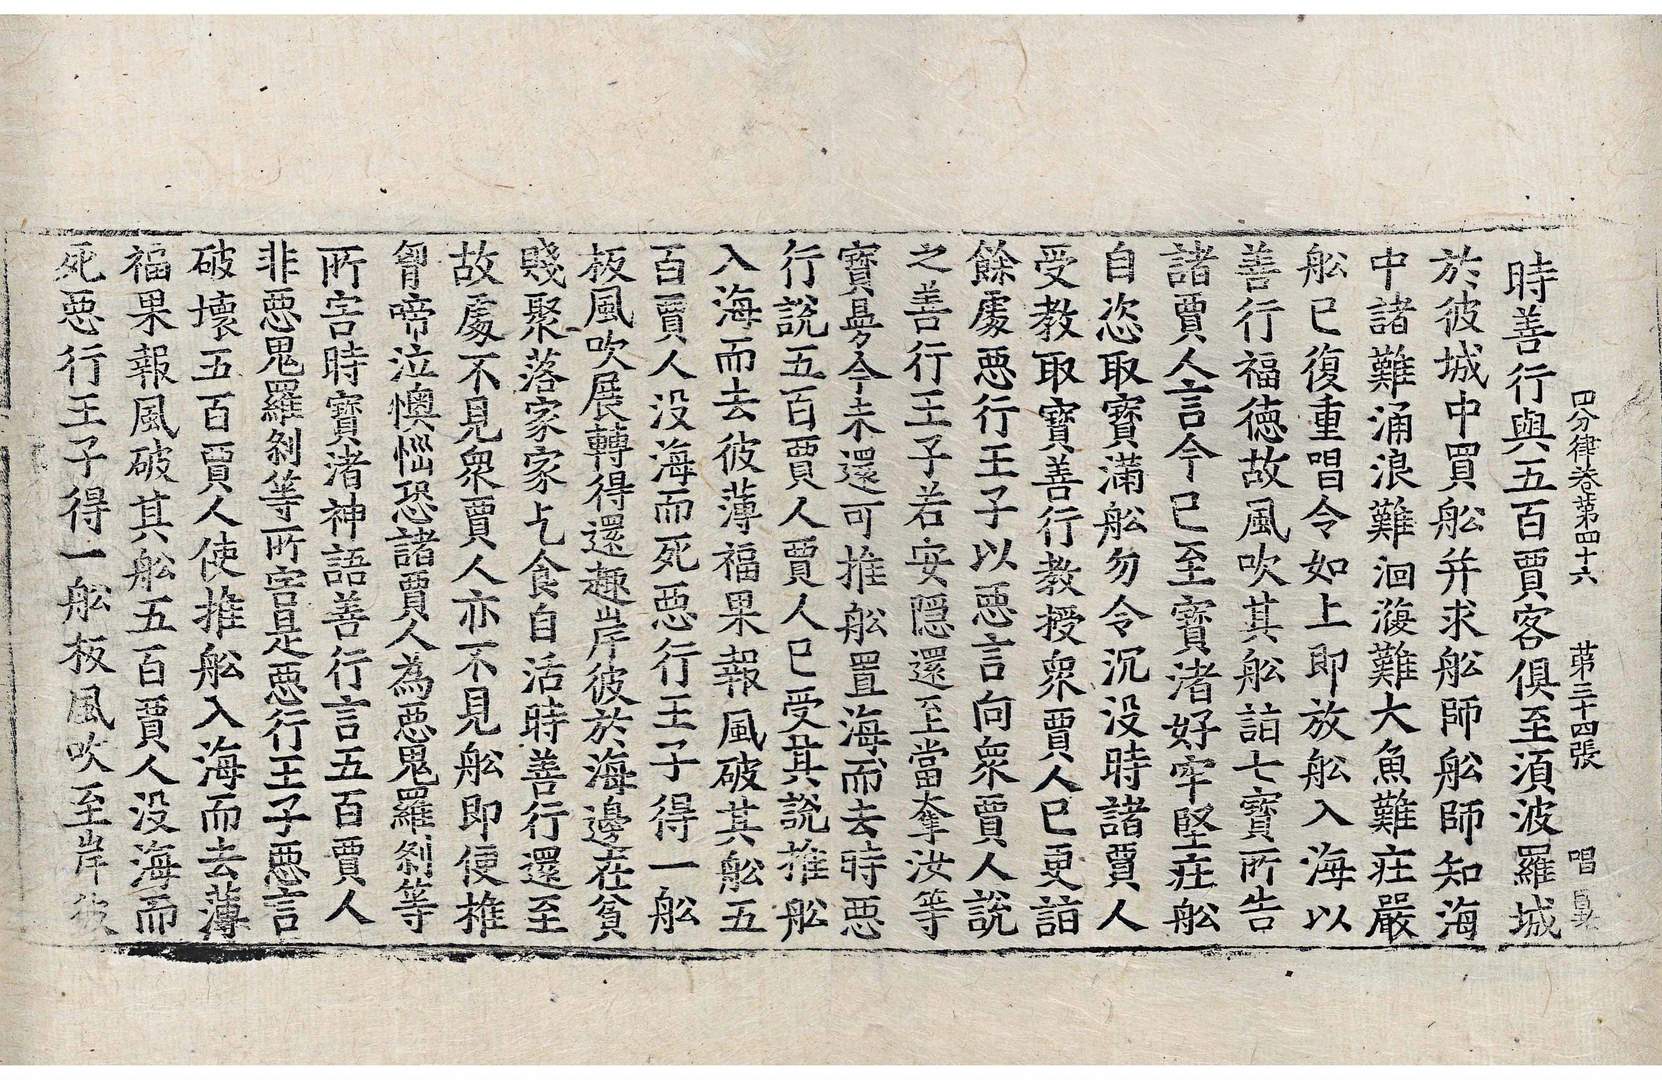 四分律卷第四十六 第三十四張 唱
時善行與五百賈客俱至湏波羅城
於彼城中買舩幷求舩師舩師知海
中諸難涌浪難洄澓難大魚難在嚴
舩已復重唱令如上即放舩入海以
善行福德故風吹其舩詣七寶所告
諸賈人言今已至寶渚好牢堅在舩
自恣取寶滿舩勿令沉没時諸賈人
受教取寶善行教授衆賈人已更詣
餘處惡行王子以惡言向衆賈人說
之善行王子若安隱還至當奪汝等
寶物今未還可推舩置海而去時惡
行說五百賈人賈人已受其說推舩
入海而去彼薄福果報風破其舩五
百賈人没海而死惡行王子得一舩
板風吹展轉得還趣岸彼於海邊在貧
賤聚落家家乞食自活時善行還至
故處不見衆賈人亦不見舩即便推
胷啼泣懊惱恐諸賈人為惡鬼羅剎等
所害時寶渚神語善行言五百賈人
非惡鬼羅剎等所害是惡行王子惡言
破壞五百賈人使推舩入海而去薄
福果報風破其舩五百賈人没海而
死惡行王子得一舩板風吹至岸彼